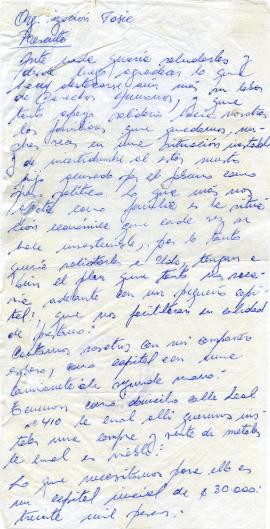 Organización Fasic
Presente
Ante todo quería saludarles y
desde luego agradecer lo que
hacen
de Derechos Humanos, y que
tanto apego solidario hacia nosotras
las familias que quedamos
en una situación inestable
y de incertidumbre al estar nuestro
hijo acusado por el
preso político lo que más nos
como familia es la situa-
ción económica que cada vez se
hace insostenible, por lo tanto
quería solicitarle a Uds. tengan a
bien el plan que tanto
adelante con un pequeño capi-
tal, que nos facilitaran en calidad
de préstamo.
Contamos nosotros con mi compañero
esposo, como capital con una
camioneta de segunda mano.
Tenemos como domicilio calle Leal
nº 410 la cual allí queremos ins-
talar una compra y venta de metales
la cual es viable.
Lo que necesitamos para ello es
un capital inicial de $ 30.000.
treinta mil pesos.